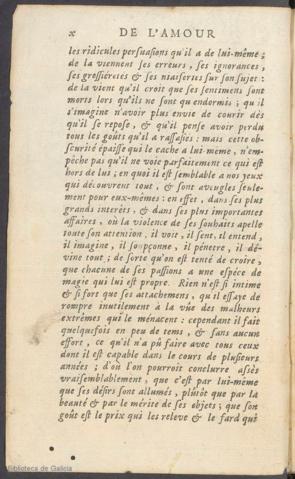 x DE L'AMOUR
les ridicules persuasions qu'il a de lui-même ;
de la viennent ses erreurs, ses ignorances,
ses grossiéretés & ses niaiseries sur son sujet :
de la vient qu'il croit que ses sentimens sont
morts lors qu'ils ne sont qu'endormis ; qu'il
s'imagine n'avoir plus envie de courir dès
qu'il se repose, & qu'il pense avoir perdu
tous les goûts qu'il a rassasiés : mais cette ob-
scurité épaisse qui le cache a lui-meme, n'em-
pêche pas qu'il ne voie parfaitement ce qui est
hors de lui ; en quoi il est semblable a nos yeux
qui découvrent tout, & sont aveugles seule-
ment pour eux-mêmes : en effet, dans ses plus
grands interêts, & dans ses plus importantes
affaires, où la violence de ses souhaits apelle
toute son attention, il voit, il sent, il entend,
il imagine, il soupçonne, il pénetre, il dé-
vine tout ; de sorte qu'on est tenté de croire,
que chacune de ses passions a une espéce de
magie qui lui est propre. Rien n'est si intime
& si fort que ses attachemens, qu'il essaye de
rompre inutilement à la vûe des malheurs
extrêmes qui le ménacent : cependant il fait
quelquefois en peu de tems, & sans aucun
effort, ce qu'il n'a pû faire avec tous ceux
dont il est capable dans le cours de plusieurs
années ; d'où l'on pourroit conclurre assès
vraisemblablement, que c'est par lui-même
que ses désirs sont allumés, plûtôt que par la
beauté & par le mérite de ses objets ; que son
goût est le prix qui les releve & le fard qui
Biblioteca de Galicia